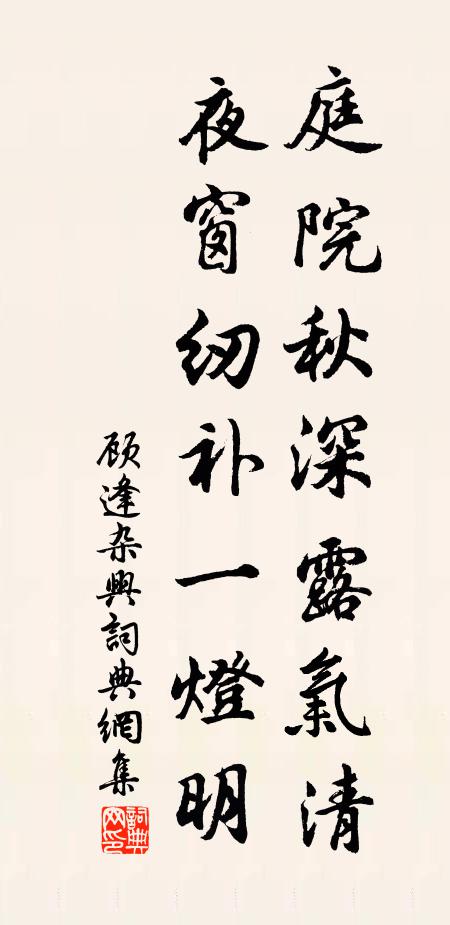 庭院秋深露氣清
夜窗紉补一燈明
顾逢杂興詞典網集
詞典网印